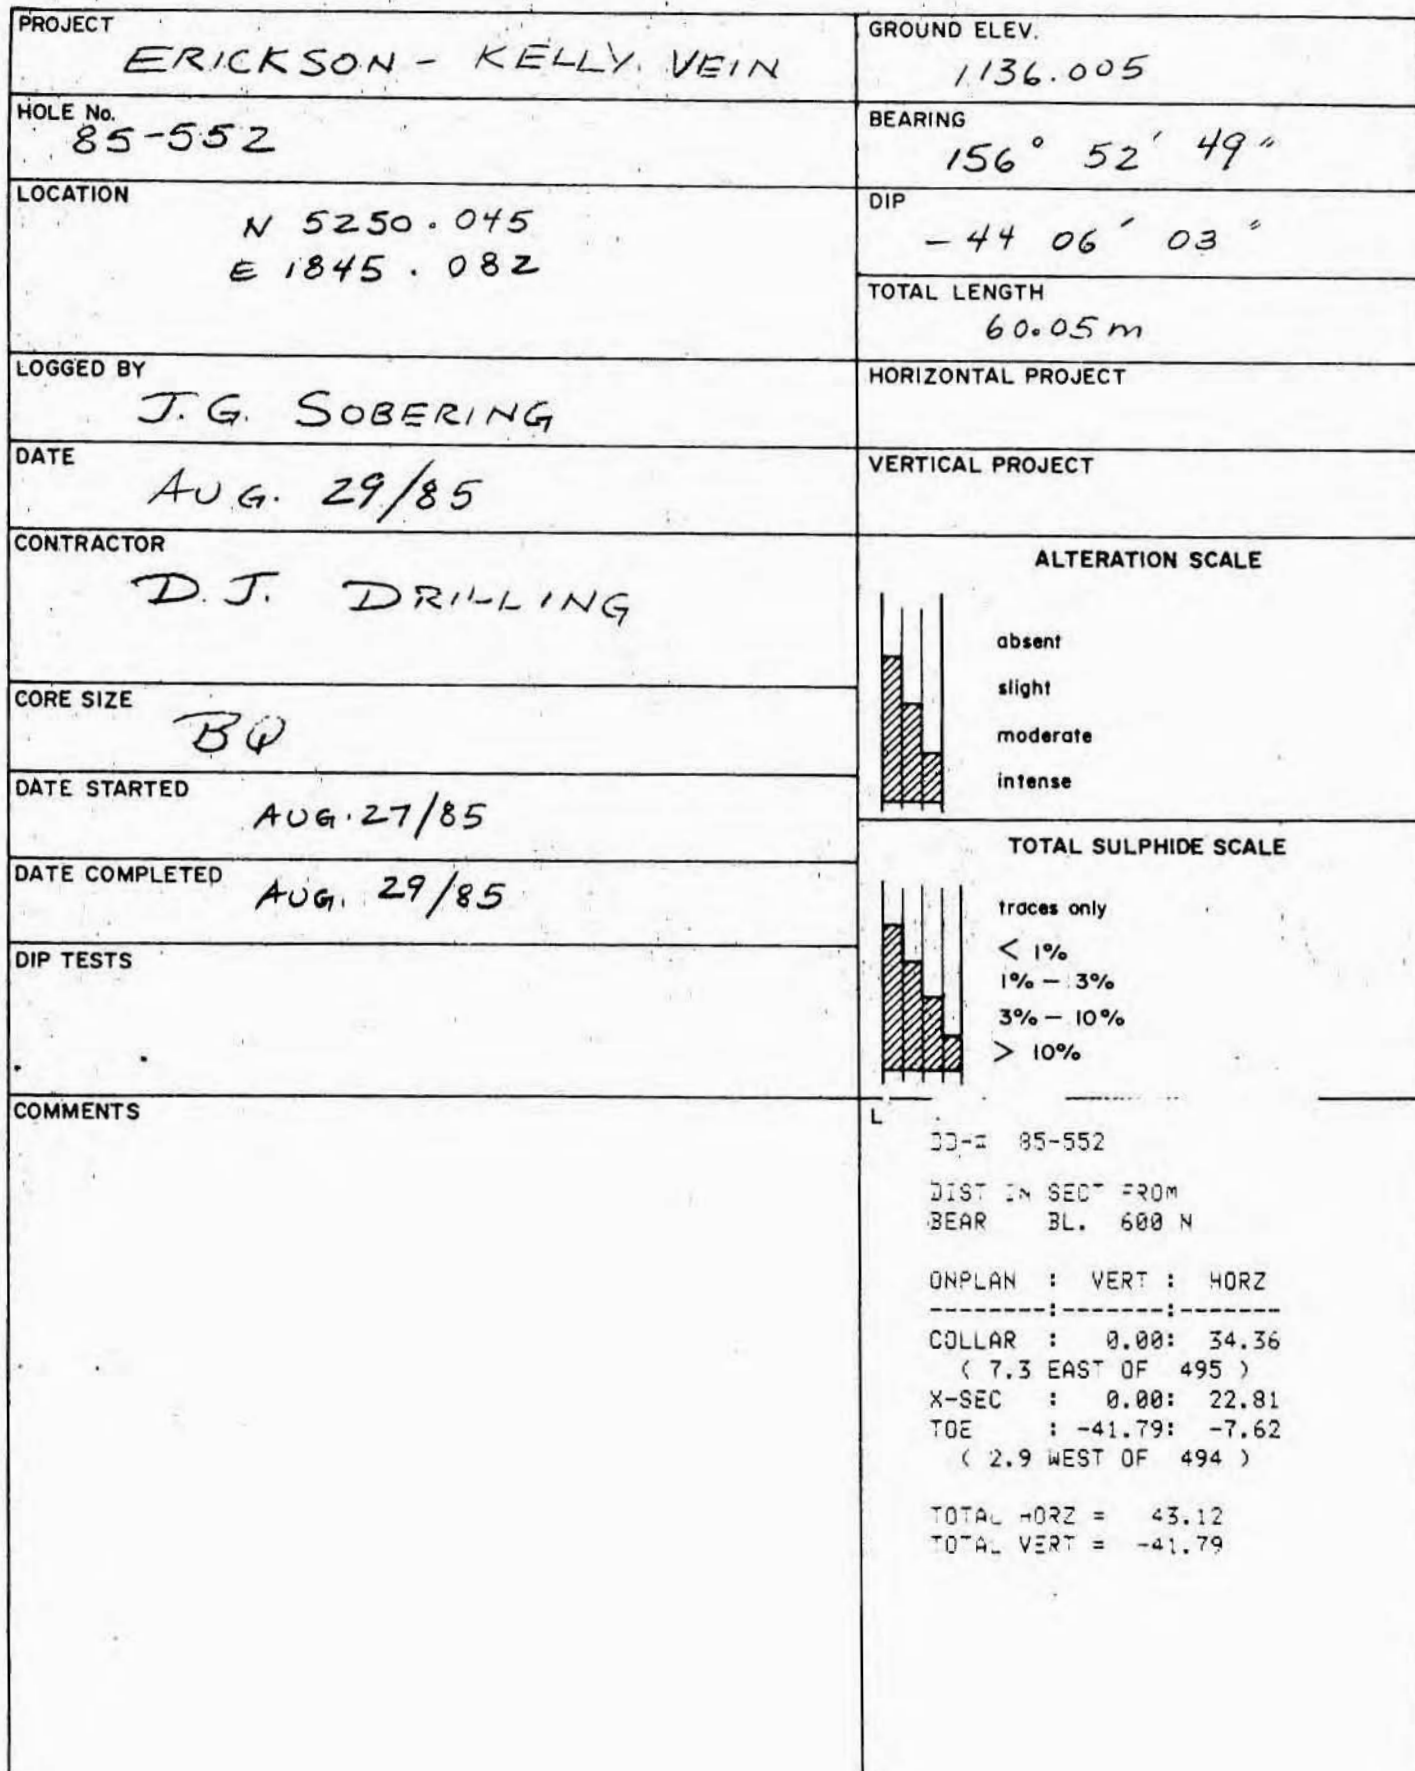 PROJECT
ERICKSON - KELLY VEIN
HOLE No.
85-552
LOCATION
N 5250.045
E 1845.082
LOGGED BY
J.G. SOBERING
DATE
AUG. 29/85
CONTRACTOR
D.J. DRILLING
CORE SIZE
BQ
DATE STARTED
AUG. 27/85
DATE COMPLETED
AUG. 29/85
DIP TESTS
COMMENTS
GROUND ELEV.
1136.005
BEARING
156° 52' 49"
DIP
-44 06' 03"
TOTAL LENGTH
60.05 m
HORIZONTAL PROJECT
VERTICAL PROJECT
ALTERATION SCALE
absent
slight
moderate
intense
TOTAL SULPHIDE SCALE
traces only
< 1%
1% - 3%
3% - 10%
> 10%
L
85-552
DIST IN SECT FROM
BEAR BL. 600 N
ONPLAN : VERT : HORZ
--------:-------:-------
COLLAR : 0.00: 34.36
( 7.3 EAST OF 495 )
X-SEC : 0.00: 22.81
TOE : -41.79: -7.62
( 2.9 WEST OF 494 )
TOTAL HORZ = 43.12
TOTAL VERT = -41.79